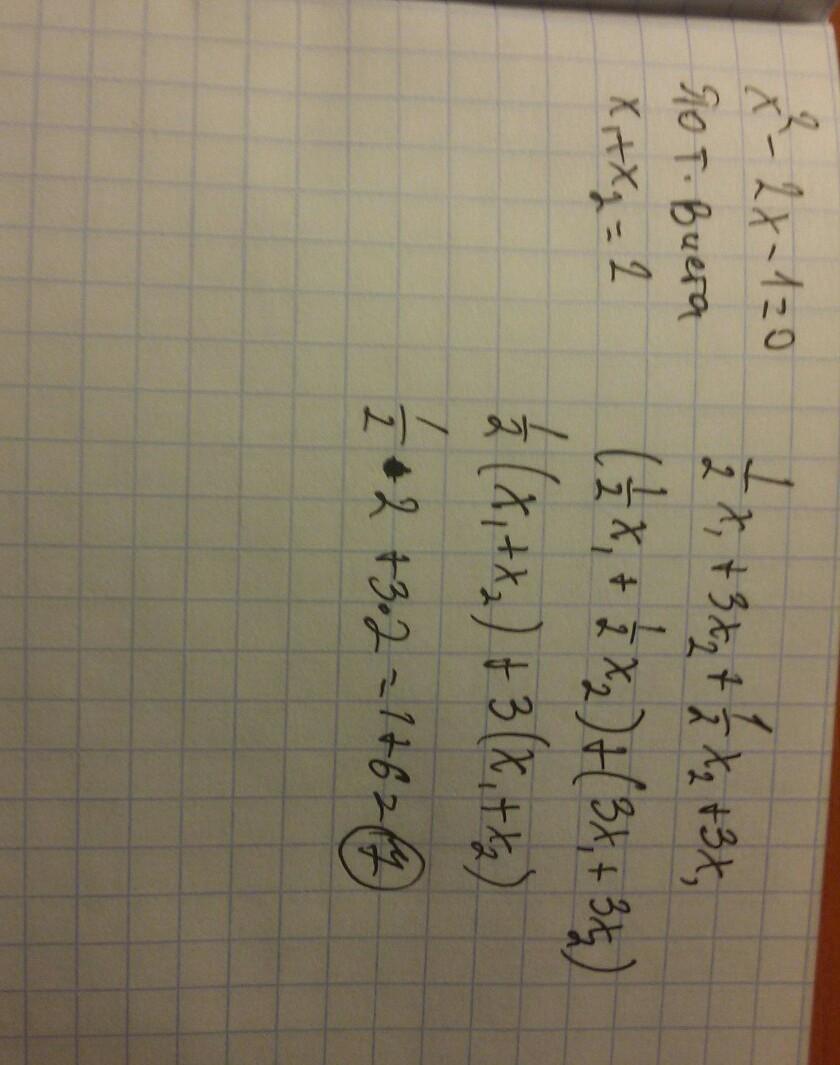 x² - 2x - 1 = 0
По т. Виета
x₁ + x₂ = 2
1/2 x₁ + 3x₂ + 1/2 x₂ + 3x₁
(1/2 x₁ + 1/2 x₂) + (3x₁ + 3x₂)
1/2 (x₁ + x₂) + 3(x₁ + x₂)
1/2 • 2 + 3•2 = 1 + 6 = 7